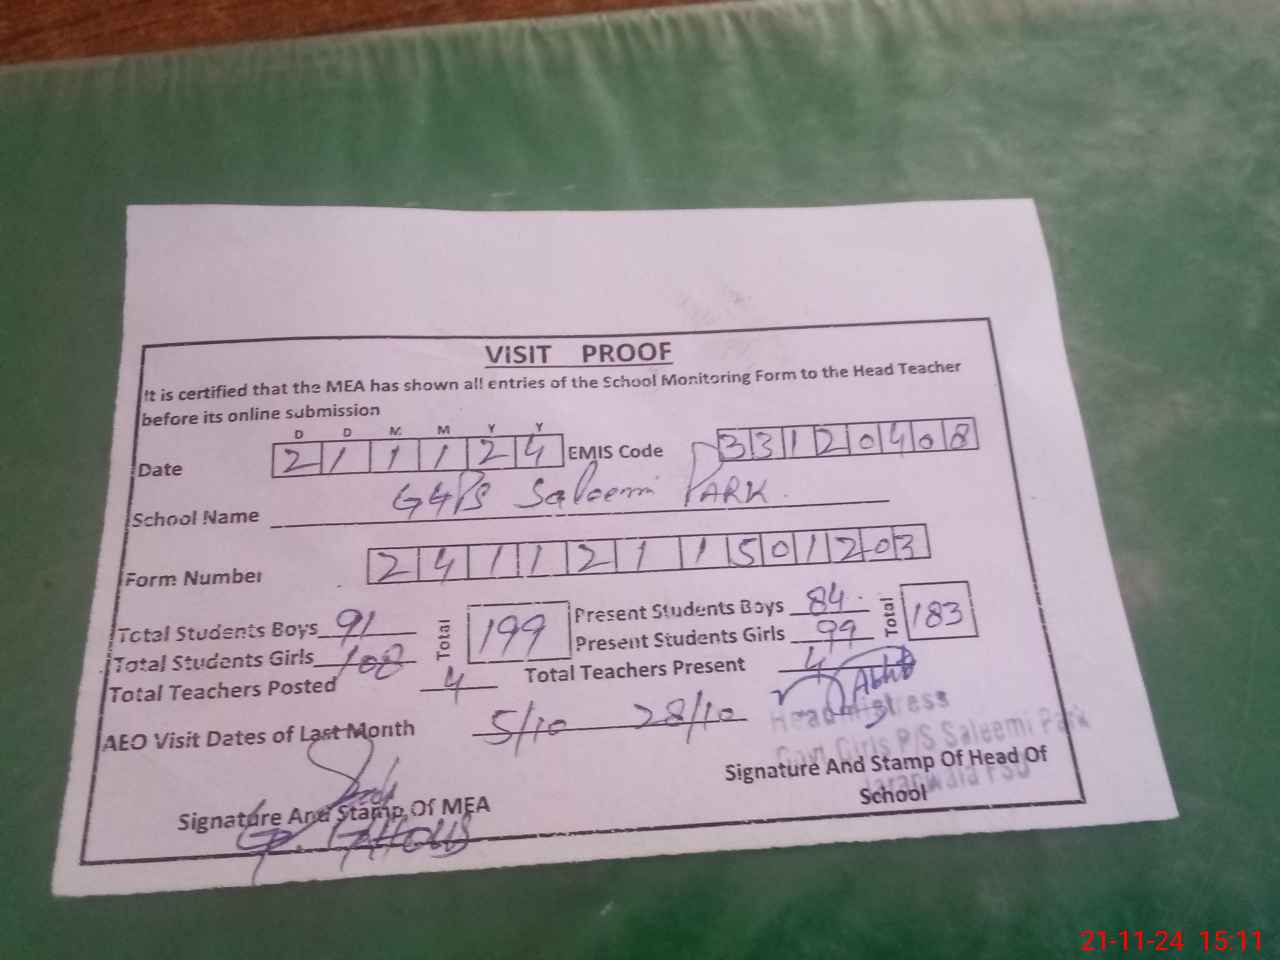 VISIT PROOF
It is certified that the MEA has shown all entries of the School Monitoring Form to the Head Teacher
before its online submission
D D M M Y Y
Date 2 1 1 1 2 4 EMIS Code 3 3 1 2 0 4 0 8
School Name GGPS Saleemi PARK
Form Number 2 4 1 1 2 1 1 5 0 1 2 0 3
Total Students Boys 91 Total 199 Present Students Boys 84 Total 183
Total Students Girls 108 Present Students Girls 99
Total Teachers Posted 4 Total Teachers Present 4
AEO Visit Dates of Last Month 5/10 28/10
Headmistress
Govt Girls P/S Saleemi Park
Jaranwala FSD
Signature And Stamp Of Head Of
School
Signature And Stamp Of MEA
21-11-24 15:11